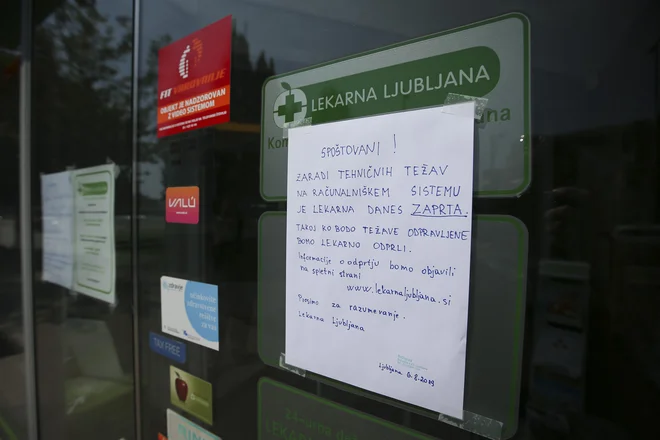 FIT VAROVANJE
OBJEKT JE NADZOROVAN
Z VIDEO SISTEMOM
LEKARNA LJUBLJANA
SPOŠTOVANI !
ZARADI TEHNIČNIH TEŽAV
NA RAČUNALNIŠKEM SISTEMU
JE LEKARNA DANES ZAPRTA.
TAKOJ KO BODO TEŽAVE ODPRAVLJENE
BOMO LEKARNO ODPRLI.
Informacije o odprtju bomo objavili
na spletni strani
www.lekarnaljubljana.si
Prosimo za razumevanje.
Lekarna Ljubljana
Ljubljana 6.8.2019
VALÚ
TAX FREE